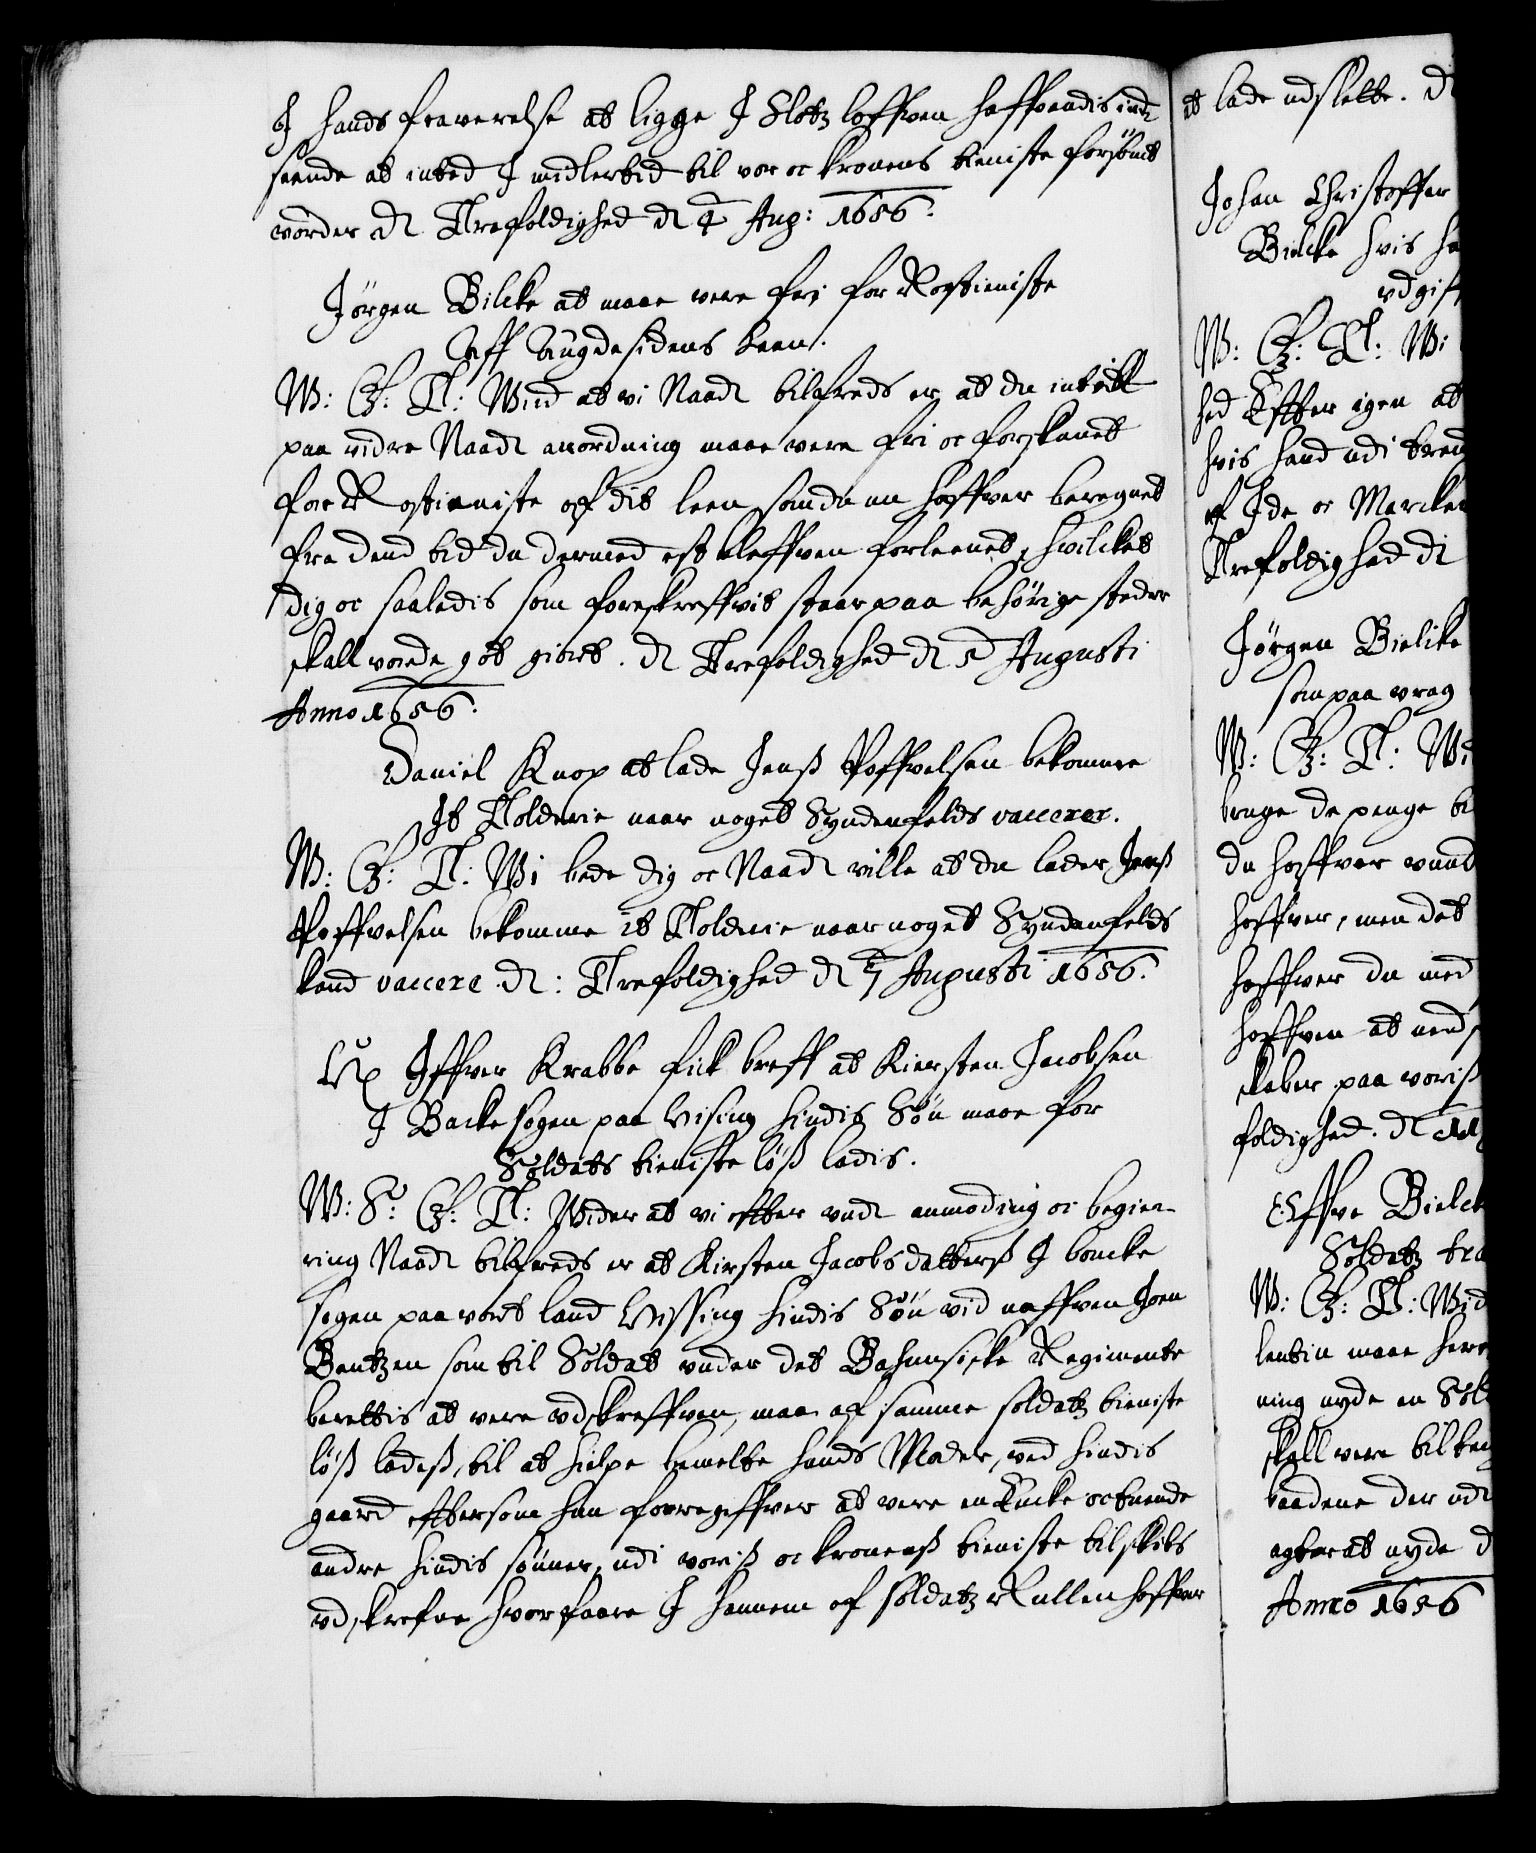 I hands fraverelse at ligge I Slotz loffven haffvendis ind
seende at inted I midlertid til vor oc Kronens tieniste forsömt
vorder dl Trefoldighed dl 4 Aug: 1656.
Jörgen Bilcke at maae vere fri for Rostieniste
Aff Augdesidens Leen.
W: G: T: Wiid at vi Naadl tilfreds er at du indtill
paa vidre Naadl anordning maae vere fri oc forskaanet
for Rostieniste af dit leen som du nu haffver beregnet
fra dend tid du dermed est bleffven forleenet, hvilcket
dig oc saaledis som foreskreffvit staar paa behörige steder
skall vorde got giort. dl Trefoldighed dl 5 Augusti
Anno 1656.
Daniel Knop at lade Jenß Poffvelsen bekomme
It Tolderie naar noget Syndenfelds vaccerer.
W: G: T: Wi bede dig oc Naadl ville at du lader Jenß
Poffvelsen bekomme it Tolderie naar noget Syndenfelds
kand vaccere dl: Trefoldighed dl 7 Augusti 1656.
Iffver Krabbe fick breff at Kiersten Jacobsen
I Backe sogen paa Vising hindis Sön maae for
Soldats tieniste löß ladis.
W: S: G: T: Wider at vi effter vnd anmoding oc begie-
ring Naadl tilfreds er at Kirsten Jacobs datterß I backe
sogen paa vort land Vissing hindis Sön vid naffven Joen
Bentzen som til Soldat vnder det Bahusiske Regimente
berettis at vere vdskreffven, maa af samme soldatz tieniste
löß ladeß, til at hielpe bemelte hands Moder, ved hindis
gaard eftersom hun foregiffver at vere en Encke oc tuende
andre hindis sönner, udi voriß oc kronenß tieniste til skibs
vdskrefne hvorfaare I hannem af soldatz Rullen haffver
at lade udslette. dl
Johan Christoffer
Bielcke hvis ha
vdgift
W: G: T: Wi
hed Effter igen at
hvis hand udi
af Ide oc Marcker
Trefoldighed dl
Jörgen Bielcke
som paa vrag
W: G: T: Wi
bruge de penge til
du haffver
haffver, men det
haffver du med
haffven at
skaber paa voriß
foldighed. dl 11
Effve Bielck
Soldatz
W: G: T: Wid
lentin maae
ning nyde en Sol
skall vere til
baadene der udi
agter at nyde d
Anno 1656